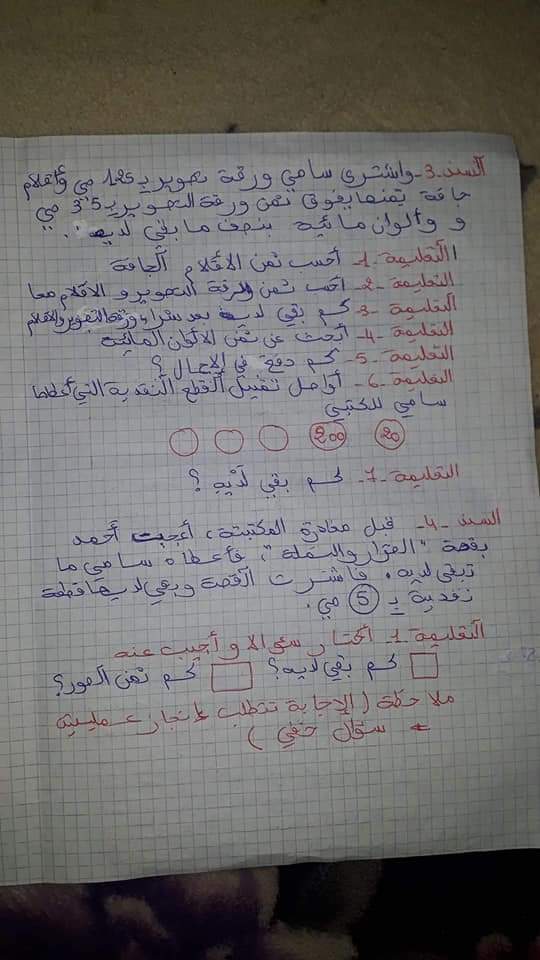 السند-3- واشترى سامي ورقة تصوير بـ 125 مي وأقلام
جافة ثمنها يفوق ثمن ورقة التصوير بـ 375 مي
و وألوان مائية بنصف ما بقي لديه.
التعليمة-1- أحسب ثمن الأقلام الجافة
التعليمة-2- احسب ثمن ورقة التصوير و الاقلام معا
التعليمة-3- كم بقي لديه بعد شراء ورقة التصوير والاقلام
التعليمة-4- أبحث عن ثمن الألوان المائية
التعليمة-5- كم دفع في الإجمال ؟
التعليمة-6- أواصل تمثيل القطع النقدية التي أعطاها
سامي للكتبي
20 200
التعليمة-7- كم بقي لديه ؟
السند-4- قبل مغادرة المكتبة، أعجبت أحمد
بقصة "الصرار والنملة"، فأعطاه سامي ما
تبقى لديه. فاشترت القصة وبقي لديها قطعة
نقدية بـ 5 مي.
التعليمة-1- أختار سؤالا وأجيب عنه
كم بقي لديه؟ كم ثمن الصور؟
ملاحظة ( الإجابة تتطلب إنجاز عمليتين
سؤال خفي )